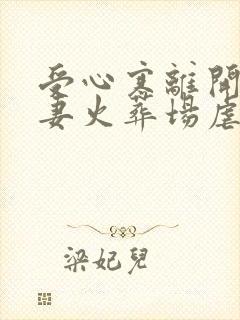 受心寒離開
妻火葬場虐
梁妃兒